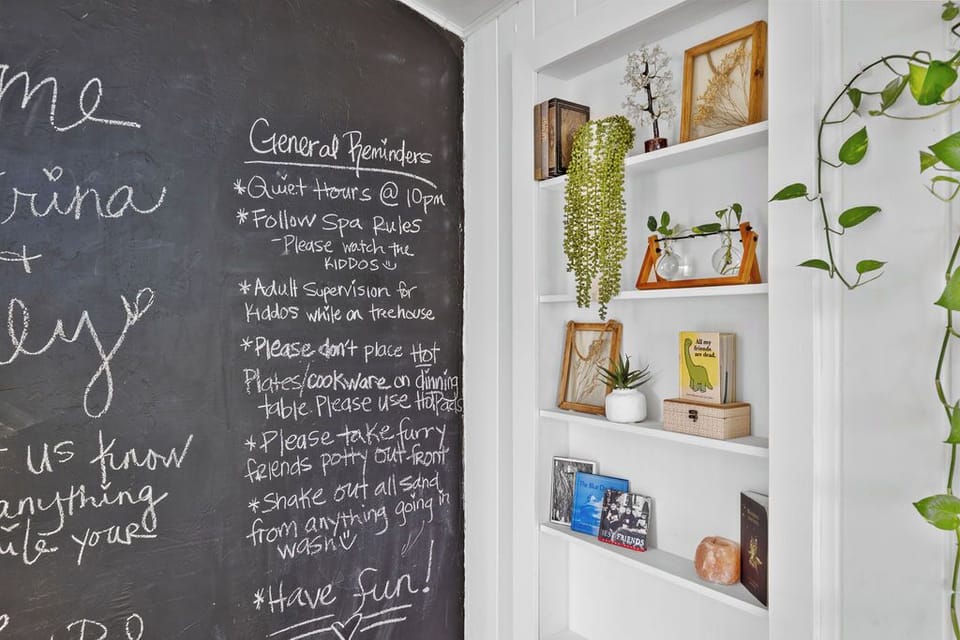 General Reminders
*Quiet Hours @ 10pm
*Follow Spa Rules
-Please watch the
KIDDOS
*Adult Supervision for
Kiddos while on treehouse
*Please don't place Hot
Plates/cookware on dinning
table. Please use HotPads
*Please take furry
friends potty out front
*Shake out all sand
from anything going in
wash
*Have fun!
me
rina
+
ley
us know
anything
your
All my
friends
are dead.
The Blue
BEST FRIENDS